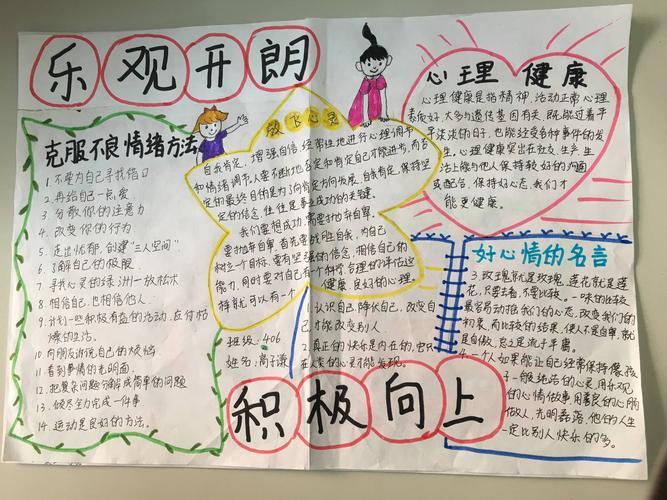 乐观开朗
克服不良情绪方法
1. 不要为自己寻找借口
2. 再给自己一点爱
3. 分散你的注意力
4. 改变你的行为
5. 走出忧郁,创建"三人空间"
6. 了解自己的极限
7. 寻找心灵的绿洲—放松术
8. 相信自己,也相信他人
9. 计划一些积极有益的活动,在付枯
燥的生活。
10. 向朋友诉说自己的烦恼
11. 看到事情的光明面
12. 把复杂问题分解成简单的问题
13. 倾尽全力完成一件事
14. 运动是良好的方法。
放飞心灵
自我肯定,增强自信 经常性地进行心理调节
和情绪调节,人要不断地否定和肯定自己才能进步,而否
定的最终目的是为了向肯定方向发展,自我肯定,保持坚
定的信念,往往是事业成功的关键。
我们要想成功,需要打击自卑,
要打击自卑,首先要战胜自我,为自己
树立一个目标,要有坚强的信念,相信自己的
能力,同时要对自己有一个科学,合理的评估,这
样就可以有一个健康、良好的心理。
班级:406
姓名:高子谦
心理 健康
心理健康是指精神、活动正常,心理
素质好,大多与遗传基因有关,既能过着平
平淡淡的日子,也能经受各种事件的发
生。心理健康突出在社交,生产,生
活上能与他人保持较好的沟通
或配合,保持好心态,我们才
能更健康。
好心情的名言
1. 认识自己,降伏自己,改变自己
,才能改变别人
2. 真正的快乐是内在的,它只
在人类的心灵才能发现。
3. 玫瑰就是玫瑰,莲花就是莲
花,只要去看,不要比较。一味的比较
最容易动摇我们的心态,改变我们的
初衷,而比较的结果,使人不是自卑,就
是自傲,总之是流于平庸。
4. 一个人如果能让自己经常保持像孩
子一般纯洁的心灵,用乐观
的心情做事,用善良的心肠
做人,光明磊落,他的人生
一定比别人快乐的多。
积极向上